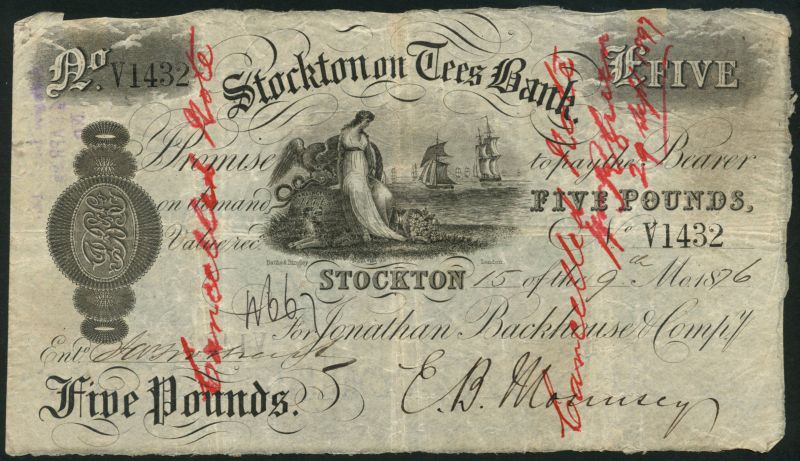 No. V1432
Stockton on Tees Bank.
£FIVE
Promise to pay the Bearer
on demand FIVE POUNDS,
Value recd. No V1432
Bathe & Bingley London.
STOCKTON 15 of the 9th Mo. 1876
For Jonathan Backhouse & Compy.
Entd.
Five Pounds. 5 E. B. Mounsey
Cancelled Note
Cancelled Note